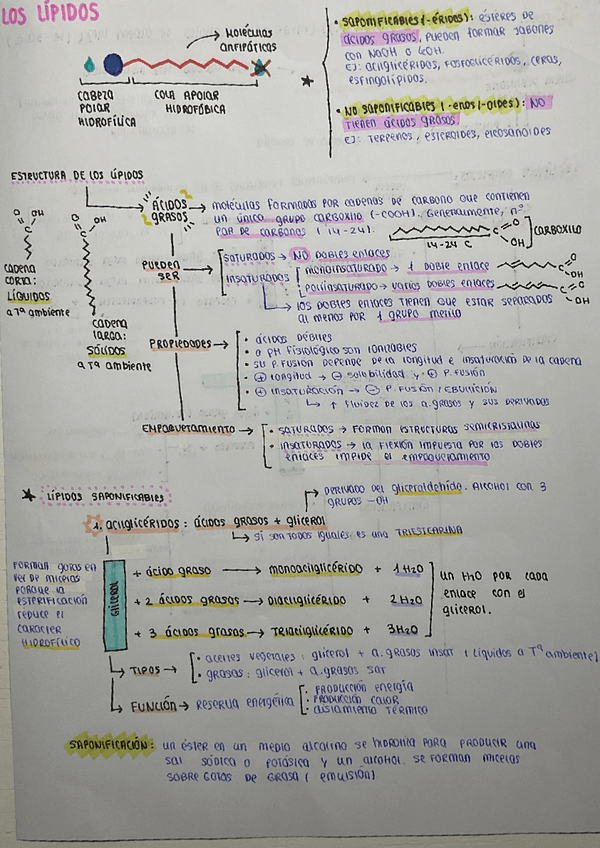 LOS LÍPIDOS
Moléculas
anfipáticas
CABEZA
POLAR
HIDROFÍLICA
COLA APOLAR
HIDROFÓBICA
• SAPONIFICABLES (-ÉRIDOS): ÉSTERES DE
ÁCIDOS GRASOS, PUEDEN FORMAR JABONES
CON NaOH o KOH.
EJ: ACILGLICÉRIDOS, FOSFOGLICÉRIDOS, CERAS,
ESFINGOLÍPIDOS.
• NO SAPONIFICABLES (-ENOS/-OIDES): NO
TIENEN ÁCIDOS GRASOS.
EJ: TERPENOS, ESTEROIDES, EICOSANOIDES
ESTRUCTURA DE LOS LÍPIDOS
ÁCIDOS
GRASOS
moléculas formados por cadenas de carbono que contienen
un único grupo carboxilo (-COOH). Generalmente, nº
PAR DE CARBONOS (14-24).
14-24 C
C
O
OH
CARBOXILO
O OH
C
CADENA
CORTA:
LÍQUIDOS
a Tª ambiente
O OH
C
CADENA
LARGA:
SÓLIDOS
a Tª ambiente
PUEDEN
SER
SATURADOS → NO DOBLES ENLACES
INSATURADOS
MONOINSATURADO → 1 DOBLE ENLACE
POLIINSATURADO → VARIOS DOBLES ENLACES
C
O
OH
C
O
OH
LOS DOBLES ENLACES TIENEN QUE ESTAR SEPARADOS
AL MENOS POR 1 GRUPO METILO
PROPIEDADES →
• ÁCIDOS DÉBILES
• A PH FISIOLÓGICO SON IONIZABLES
• SU P. FUSIÓN DEPENDE DE LA LONGITUD E INSATURACIÓN DE LA CADENA
• ⊕ LONGITUD → ⊖ SOLUBILIDAD Y ⊕ P. FUSIÓN
• ⊕ INSATURACIÓN → ⊖ P. FUSIÓN / EBULLICIÓN
↑ FLUIDEZ DE LOS A.GRASOS Y SUS DERIVADOS
EMPAQUETAMIENTO →
• SATURADOS → FORMAN ESTRUCTURAS SEMICRISTALINAS
• INSATURADOS → LA FLEXIÓN IMPUESTA POR LOS DOBLES
ENLACES IMPIDE EL EMPAQUETAMIENTO
★ LÍPIDOS SAPONIFICABLES
DERIVADO DEL gliceraldehído. ALCOHOL CON 3
GRUPOS -OH
1. acilglicéridos: ácidos grasos + glicerol
SI SON TODOS IGUALES ES UNA TRIESTEARINA
FORMAN GOTAS EN
VEZ DE MICELAS
PORQUE LA
ESTERIFICACIÓN
REDUCE EL
CARÁCTER
HIDROFÍLICO
GLICEROL
+ ácido graso → MONOACILGLICÉRIDO + 1H₂O
+ 2 ácidos grasos → DIACILGLICÉRIDO + 2H₂O
+ 3 ácidos grasos → TRIACILGLICÉRIDO + 3H₂O
UN H₂O POR CADA
ENLACE CON EL
GLICEROL.
TIPOS →
• ACEITES VEGETALES: glicerol + a.grasos insat (líquidos a Tª ambiente)
• GRASAS: glicerol + a.grasos sat
FUNCIÓN → RESERVA ENERGÉTICA
• PRODUCCIÓN ENERGÍA
• PRODUCCIÓN CALOR
• AISLAMIENTO TÉRMICO
SAPONIFICACIÓN: UN ÉSTER EN UN MEDIO ALCALINO SE HIDROLIZA PARA PRODUCIR UNA
SAL SÓDICA O POTÁSICA Y UN ALCOHOL. SE FORMAN MICELAS
SOBRE GOTAS DE GRASA (EMULSIÓN)